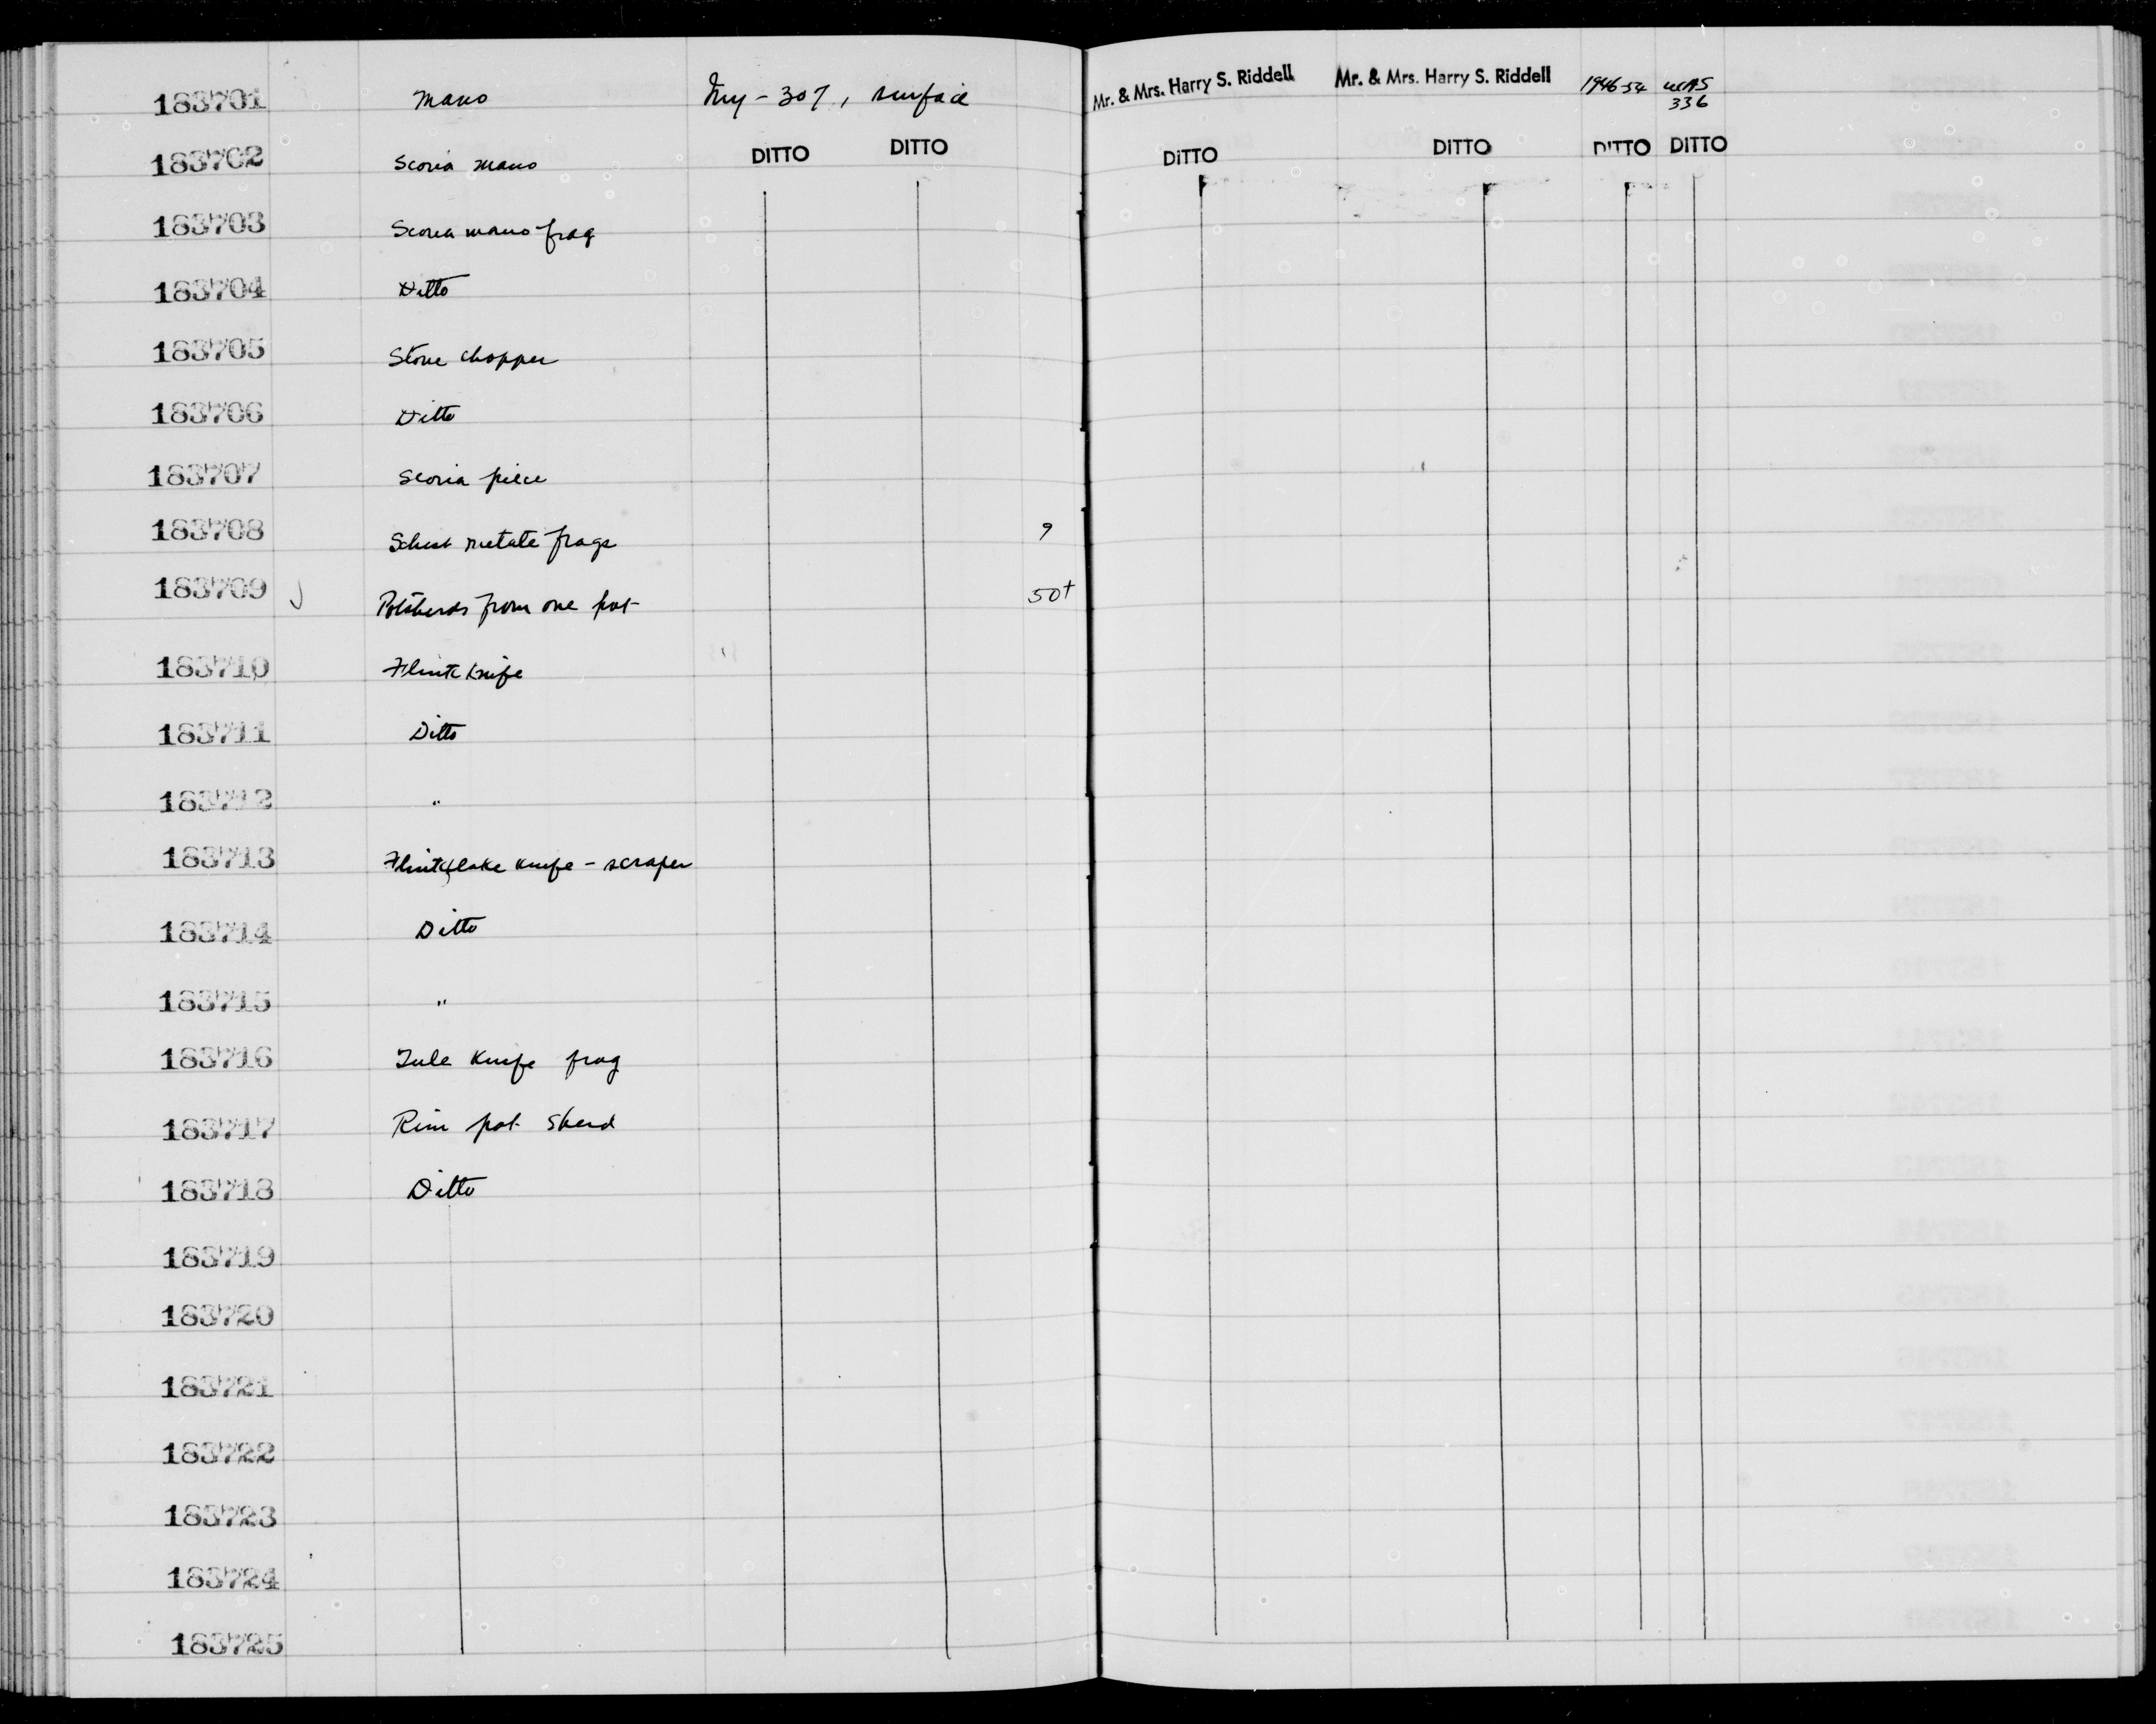 183701 Mano Iny-307, surface Mr. & Mrs. Harry S. Riddell Mr. & Mrs. Harry S. Riddell 1946-54 UCAS
336
183702 Scoria mano DITTO DITTO DITTO DITTO DITTO DITTO
183703 Scoria mano frag
183704 Ditto
183705 Stone chopper
183706 Ditto
183707 Scoria piece
183708 Schist metate frags 9
183709 Potsherds from one pot 50+
183710 Flint knife
183711 Ditto
183712 "
183713 Flint flake knife - scraper
183714 Ditto
183715 "
183716 Tule knife frag
183717 Rim pot sherd
183718 Ditto
183719
183720
183721
183722
183723
183724
183725